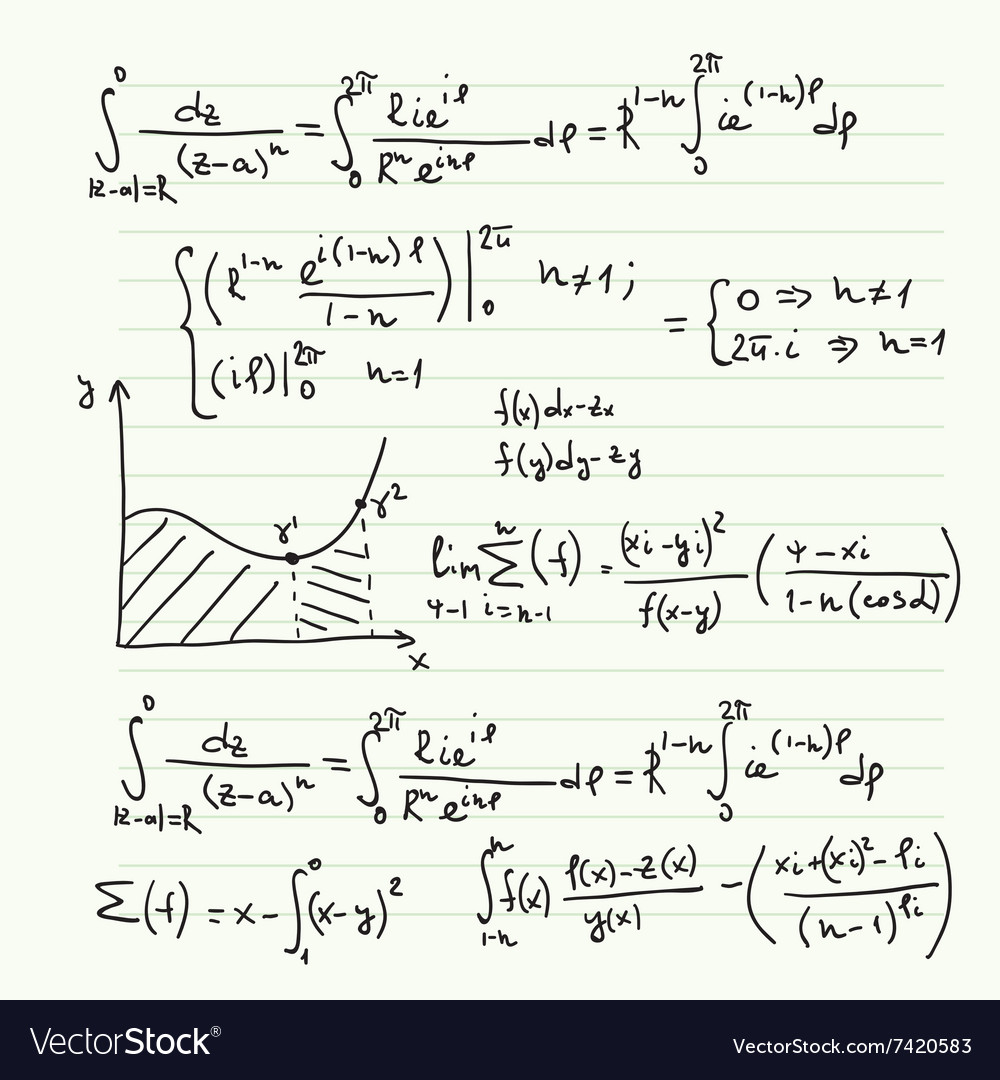 ∫_{|z-a|=R}^{0} dz/(z-a)^n = ∫_0^{2π} Rie^{iφ}/R^n e^{inφ} dφ = R^{1-n} ∫_0^{2π} ie^{(1-n)φ} dφ
{ (R^{1-n} e^{i(1-n)φ}/1-n) |_0^{2π} n≠1;
(iφ)|_0^{2π} n=1
= { 0 ⇒ n≠1
2π·i ⇒ n=1
f(x)dx-zx
f(y)dy-zy
y
γ¹
γ²
x
lim_{φ-1} Σ_{i=n-1}^{n} (f) = (xi-yi)²/f(x-y) (φ-xi/1-n(cosα))
∫_{|z-a|=R}^{0} dz/(z-a)^n = ∫_0^{2π} Rie^{iφ}/R^n e^{inφ} dφ = R^{1-n} ∫_0^{2π} ie^{(1-n)φ} dφ
Σ(f) = x - ∫_1^0 (x-y)²
∫_{1-n}^{n} f(x) φ(x)-z(x)/y(x) - (xi+(xi)²-φi/(n-1)^{φi})
VectorStock®
VectorStock.com/7420583